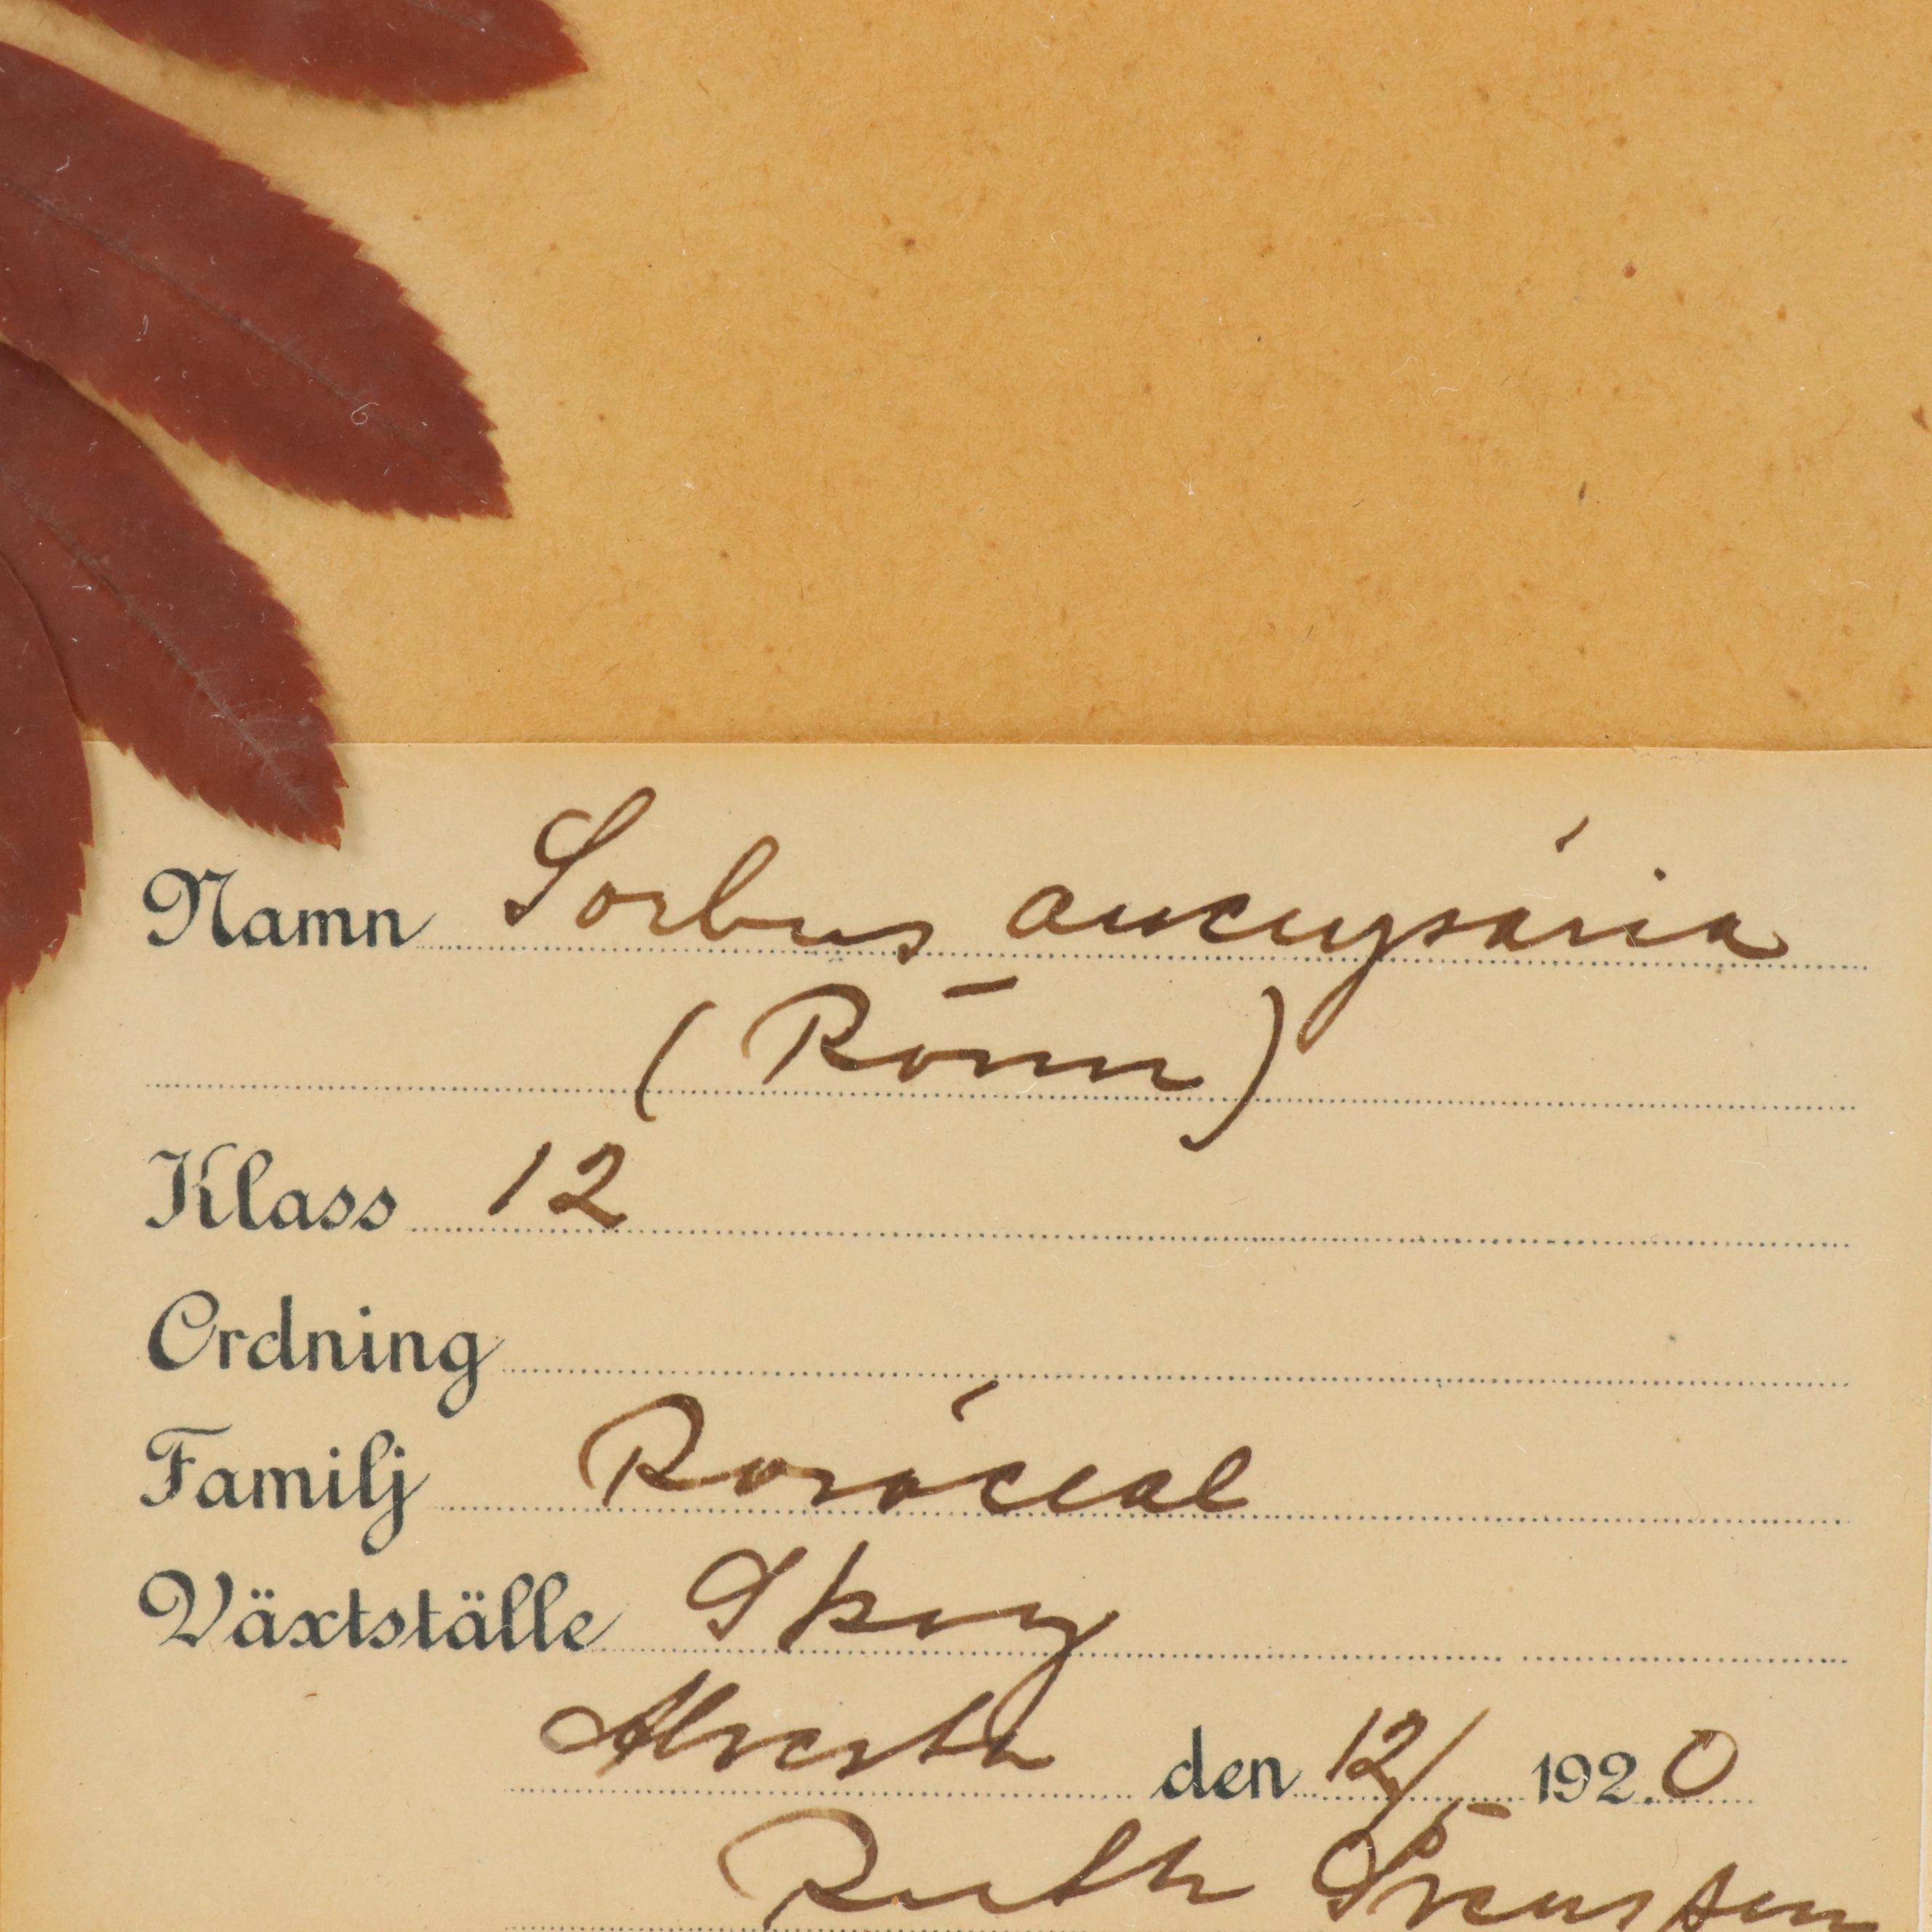 Namn Sorbus aucupária
(Rönn)
Klass 12
Ordning
Familj Rosáceae
Växtställe Skog
Alvesta den 12/5 1920
Ruth Svensson